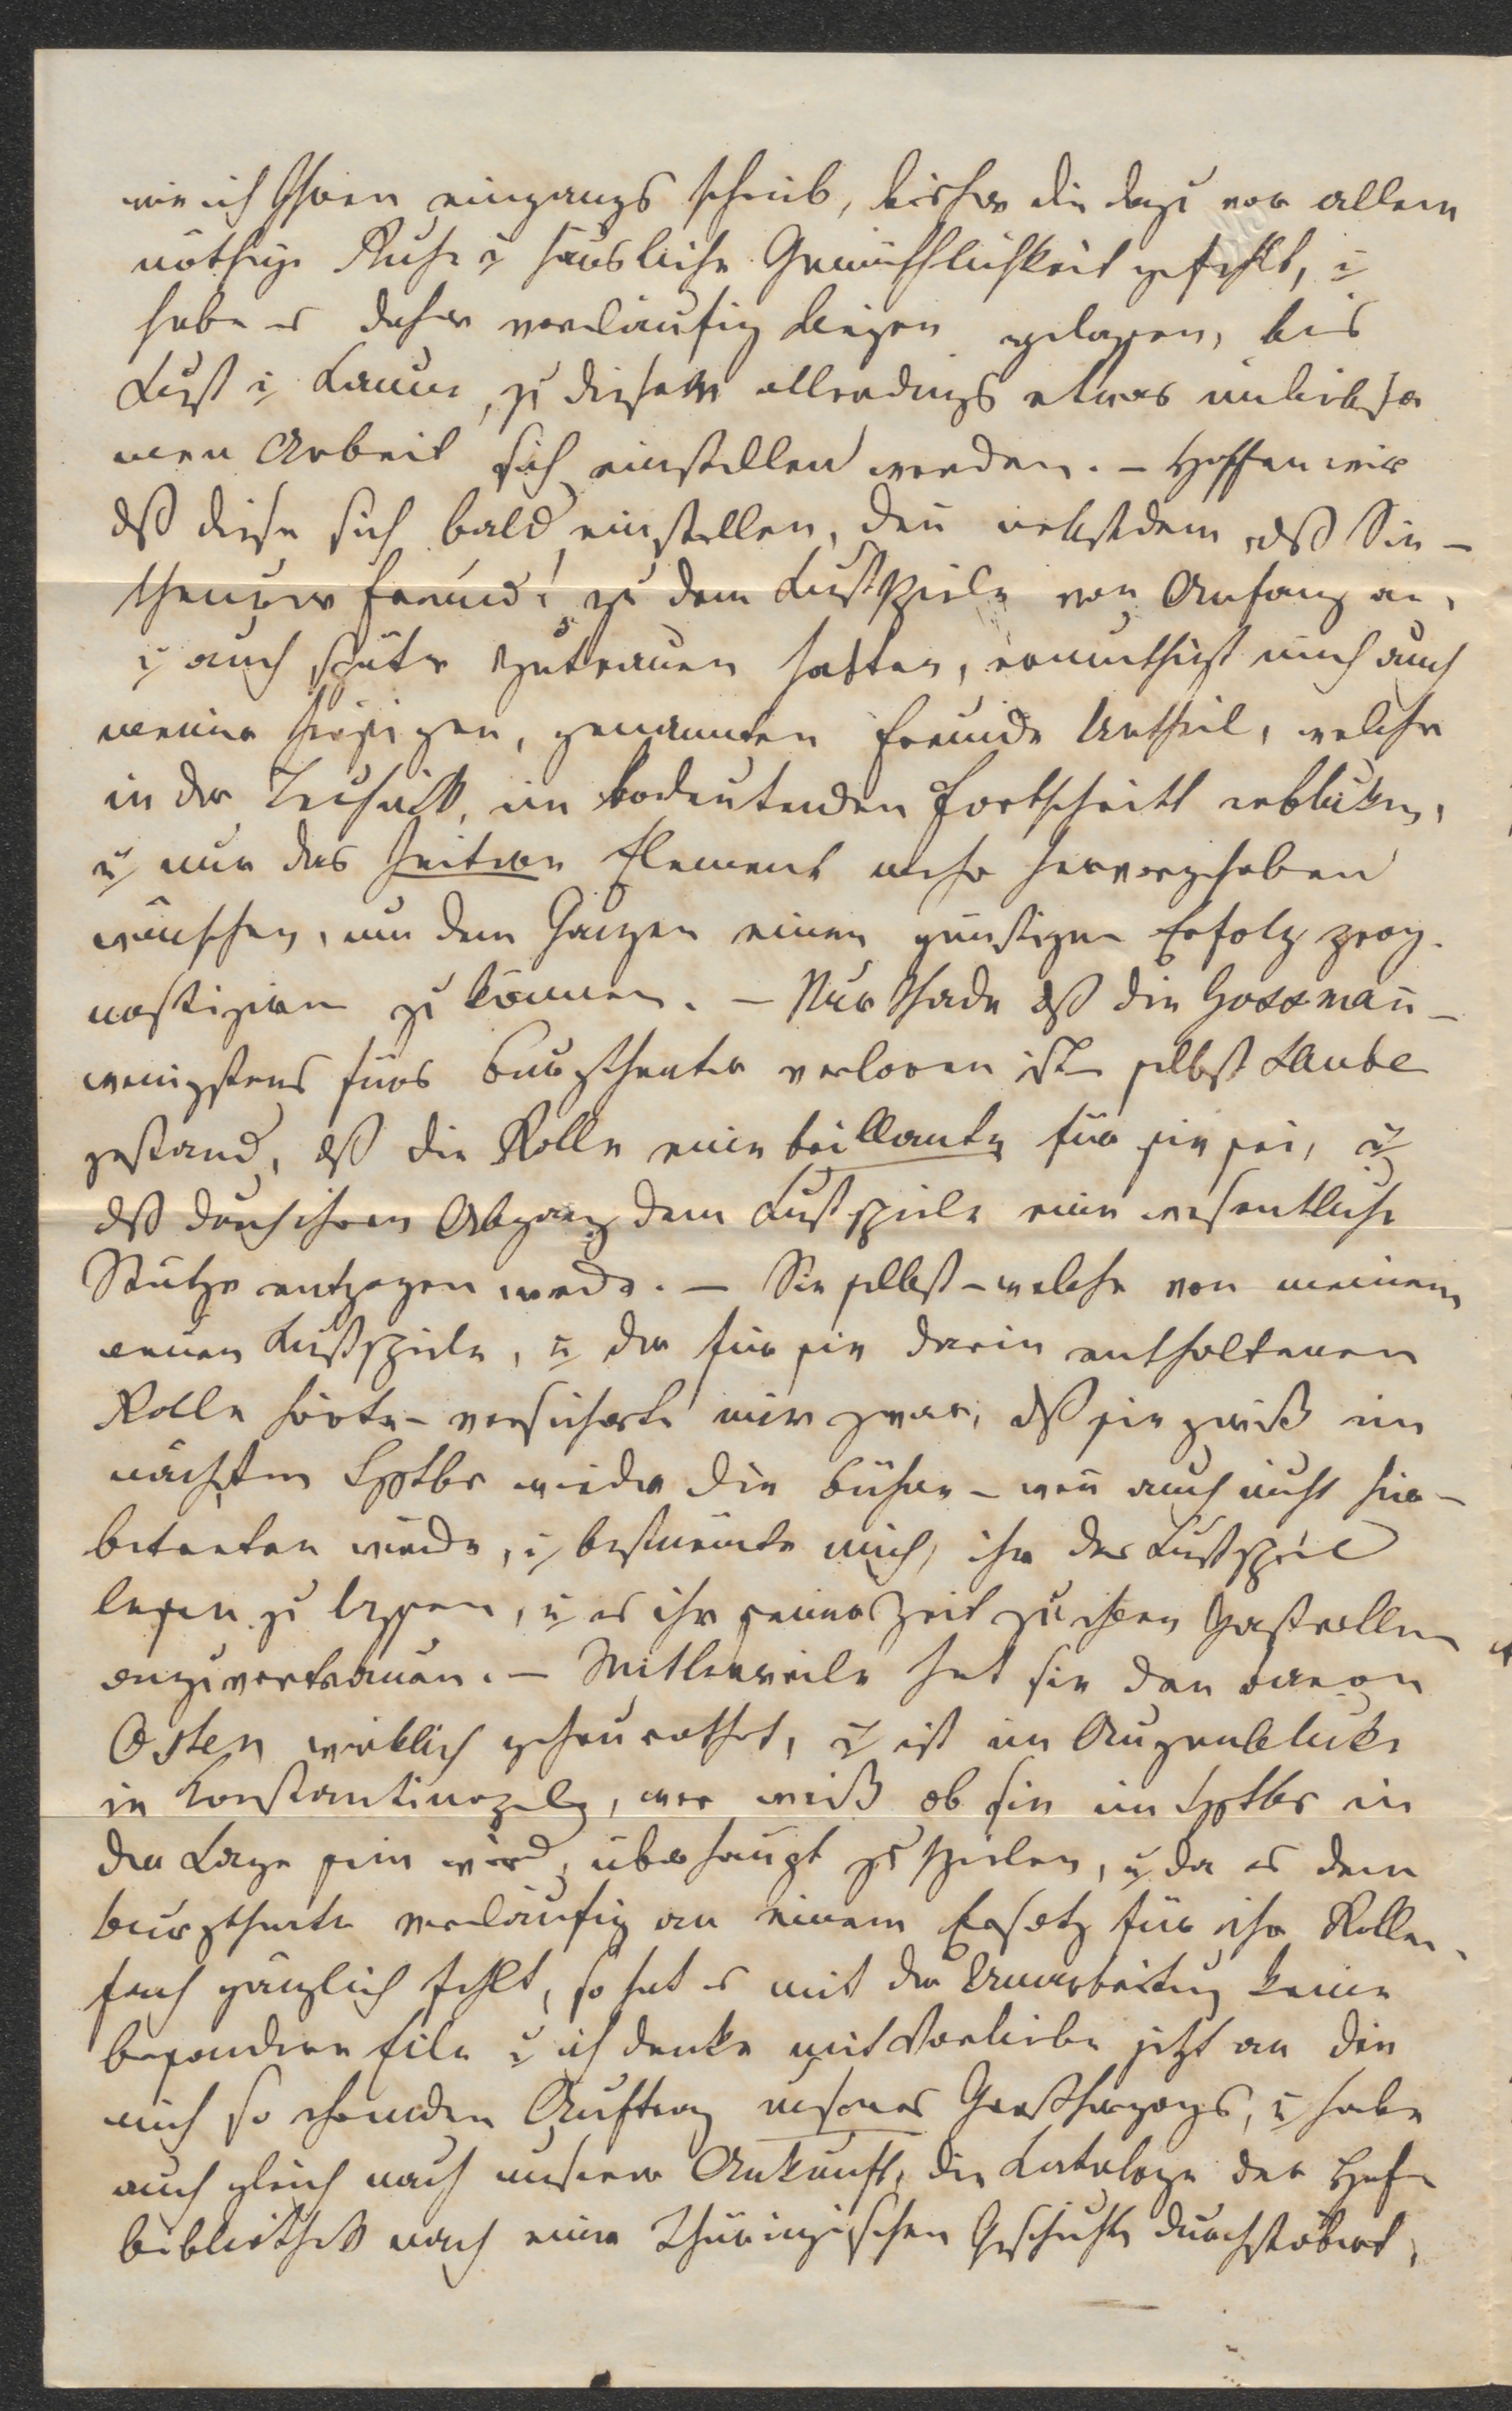 wie ich Ihnen eingangs schrieb, bisher die dazu vor allem
nöthige Ruhe u häusliche Gemüthlichkeit gefehlt, u
habe es daher vorläufig liegen gelassen, bis
Lust u Laune, zu dieser allerdings etwas unliebsa
men Arbeit sich einstellen werden. – Hoffen wir
dß diese sich bald einstellen, den nebstdem dß Sie –
theurer Freund! zu dem Lustspiele von Anfang an,
u auch später Zutrauen hatten, ermuthigt mich auch
meiner hiesigen, genannten Freunde Urtheil, welche
in der Technik, ein bedeutenden Fortschritt erblicken,
u nur das heitere Element mehr hervorgehoben
wünschen, um dem Ganzen einen günstigen Erfolg prog-
nostiziren zu können. – Nur Schade dß die Gossmañ –
wenigstens fürs Burgtheater verloren ist – selbst Laube
gestand, dß die Rolle eine brillante für sie sei, u
dß durch ihren Abgang dem Lustspiele eine wesentliche
Stütze entzogen werde. – Sie selbst – welche von meinem
neuen Lustspiele, u der für sie darin enthaltenen
Rolle hörte – versicherte mir zwar, dß sie gewiß im
nächsten Sptbr wieder die Bühne – weñ auch nicht hier –
betreten würde, u bestürmte mich, ihr das Lustspiel
lesen zu lassen, u es ihr seiner Zeit zu ihren Gastrollen
anzuvertrauen. – Mitlerweile hat sie den Baron
Osten wirklich geheurathet, u ist im Augenblicke
in Konstantinopel, wer weiß ob sie im Sptbr in
der Lage sein wird, überhaupt zu spielen, u da es dem
Burgtheater vorläufig an einem Ersatz für ihr Rollen-
fach gänzlich fehlt, so hat es mit der Umarbeitung keine
besondere Eile u ich denke mit Vorliebe jetzt an den
mich so ehrenden Auftrag unseres Großherzogs, u habe
auch gleich nach unserer Ankunft, die Kataloge der Hof-
bibliothek nach einer Thüringischen Geschichte durchstöbert,